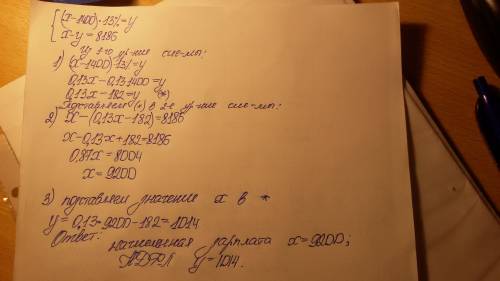 {(x-1400)·13%=y
x-y=8186
Из 1-го ур-ние сис-мы:
1) (x-1400)·13%=y
0,13x-0,13·1400=y
0,13x-182=y (*)
Подставляем (*) в 2-е ур-ние сис-мы:
2) x-(0,13x-182)=8186
x-0,13x+182=8186
0,87x=8004
x=9200
3) подставляем значение x в *
y=0,13·9200-182=1014
Ответ: начисленная зарплата x=9200;
НДФЛ y=1014.